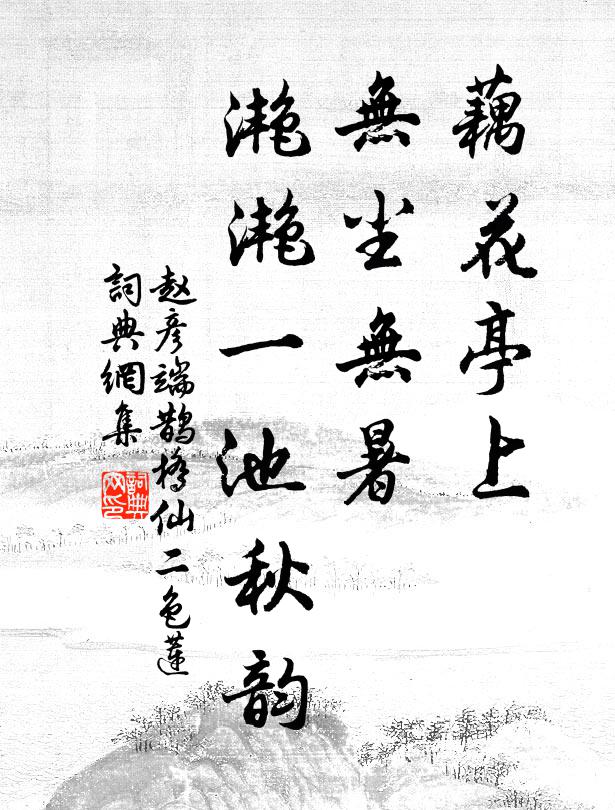 藕花亭上
無塵無暑
灔灔一池秋韵
赵彦端鹊橋仙二色蓮
詞典網集
詞典
网印